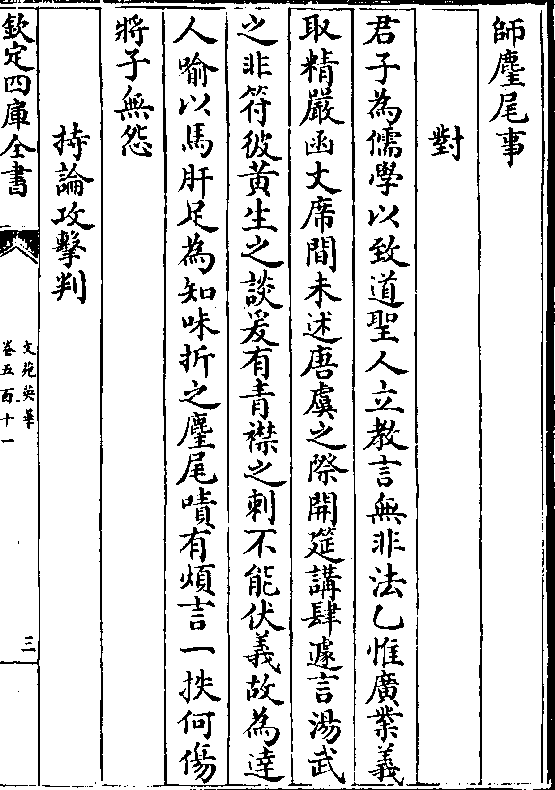 師麈尾事
對
君子為儒學以致道聖人立教言無非法乙惟廣業義
取精嚴函丈席間未述唐虞之際開筵講肆遽言湯武
之非符彼黄生之談爰有青襟之刺不能伏義故為達
人喻以馬肝足為知味折之麈尾嘖有煩言一抶何傷
將子無怨
持論攻擊判
欽定四庫全書
文苑英華
卷五百十一
三